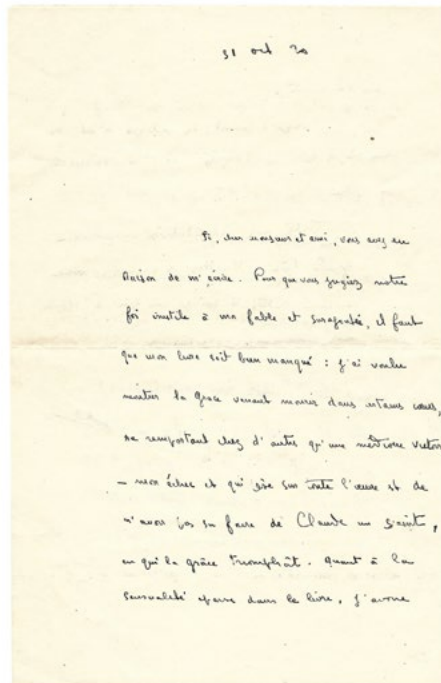 31 oct 20
Si, cher monsieur et ami, vous avez eu
raison de m'écrire. Pour que vous jugiez notre
foi inutile à ma fable et surajoutée, il faut
que mon livre soit bien manqué : j'ai voulu
montrer la Grâce venant mourir dans certains cœurs,
ne remportant chez d'autres qu'une médiocre victoire
– mon échec et qui pèse sur toute l'œuvre est de
n'avoir pas su faire de Claude un saint,
en qui la grâce triomphât. Quant à la
sensualité éparse dans le livre, j'avoue